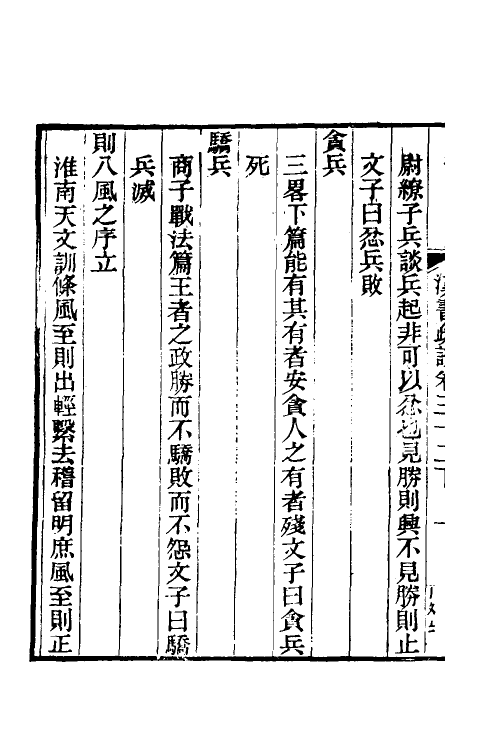 尉繚子兵談兵起非可以忿也見勝則興不見勝則止
文子曰忿兵敗
貪兵
三畧下篇能有其有者安貪人之有者殘文子曰貪兵
死
驕兵
商子戰法篇王者之政勝而不驕敗而不怨文子曰驕
兵滅
則八風之序立
淮南天文訓條風至則出輕繫去稽留明庶風至則正